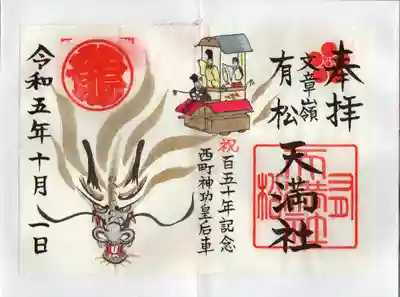 奉拝
文章嶺
有松
天満社
祝
百五十年記念
西町神功皇后車
令和五年十月一日